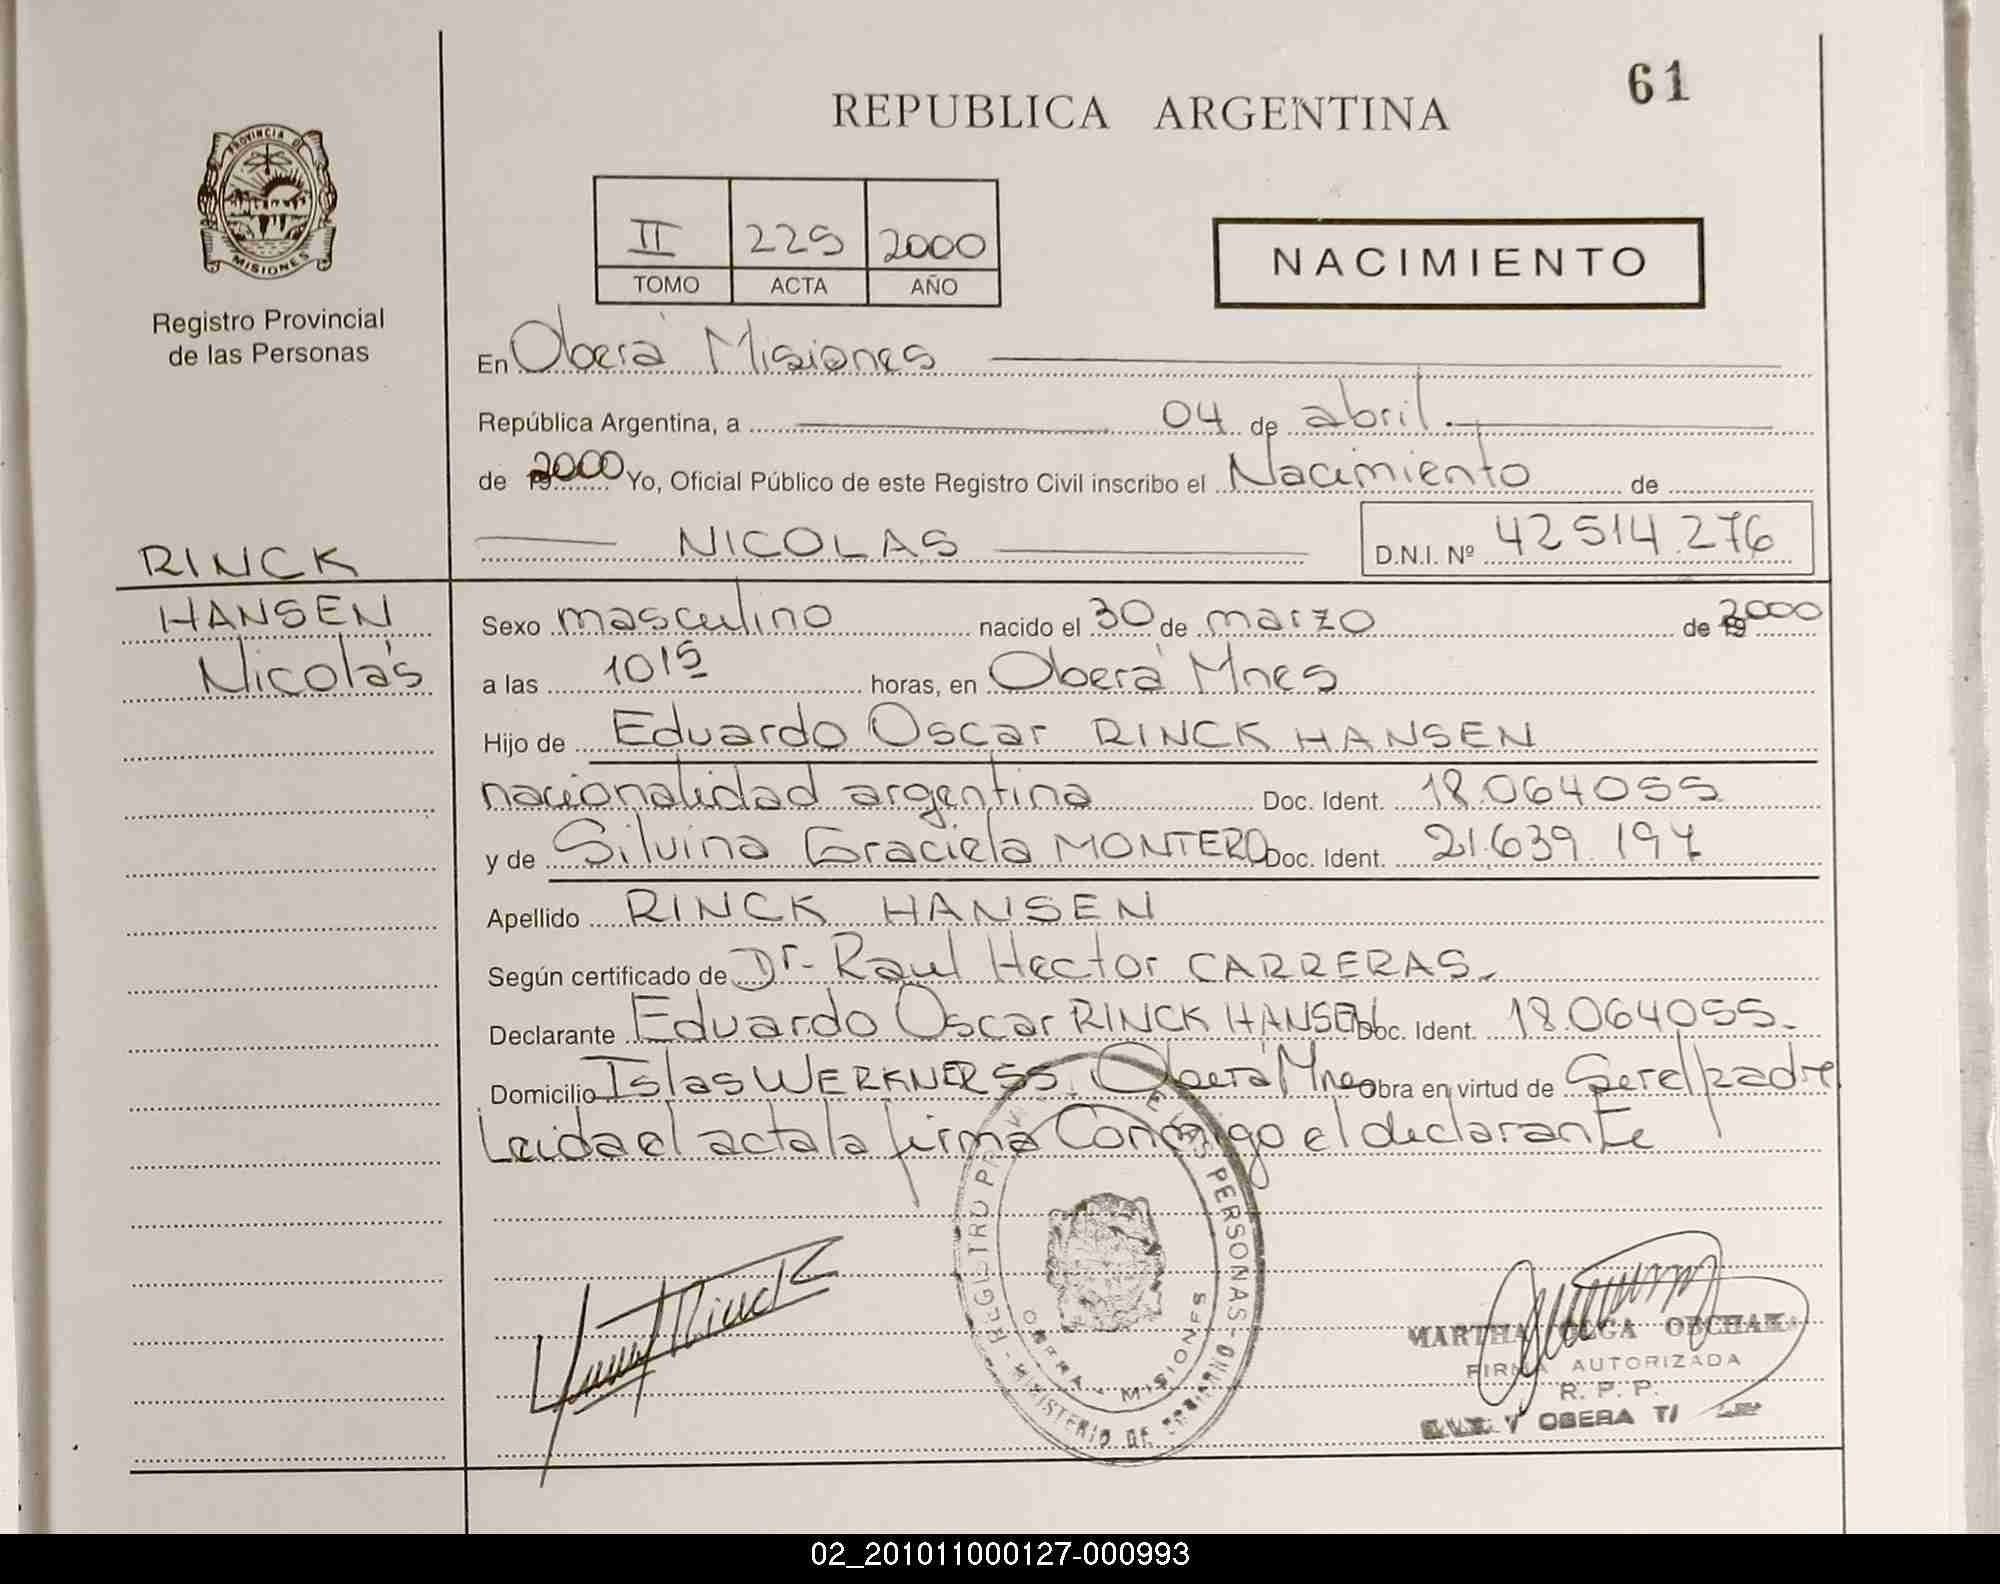 61
REPUBLICA ARGENTINA
PROVINCIA DE
MISIONES
Registro Provincial
de las Personas
II 225 2000
TOMO ACTA AÑO
NACIMIENTO
En Oberá Misiones
República Argentina, a 04 de abril.
de 2000 Yo, Oficial Público de este Registro Civil inscribo el Nacimiento de
NICOLAS D.N.I. Nº 42514.276
RINCK
HANSEN
Nicolás
Sexo masculino nacido el 30 de marzo de 2000
a las 10 15 horas, en Oberá Mnes
Hijo de Eduardo Oscar RINCK HANSEN
nacionalidad argentina Doc. Ident. 18.064055
y de Silvina Graciela MONTERO Doc. Ident. 21.639.197
Apellido RINCK HANSEN
Según certificado de Dr- Raul Hector CARRERAS.
Declarante Eduardo Oscar RINCK HANSEN Doc. Ident. 18.064055.
Domicilio Islas WERKNER 55. Oberá Mnes Obra en virtud de Ser el padre
Leida el acta la firma Conmigo el declarante
REGISTRO DE LAS PERSONAS - MINISTERIO DE GOBIERNO
OBERA - MISIONES
MARTHA OLGA OBCHAK
FIRMA AUTORIZADA
R. P. P.
OBERA
02_201011000127-000993